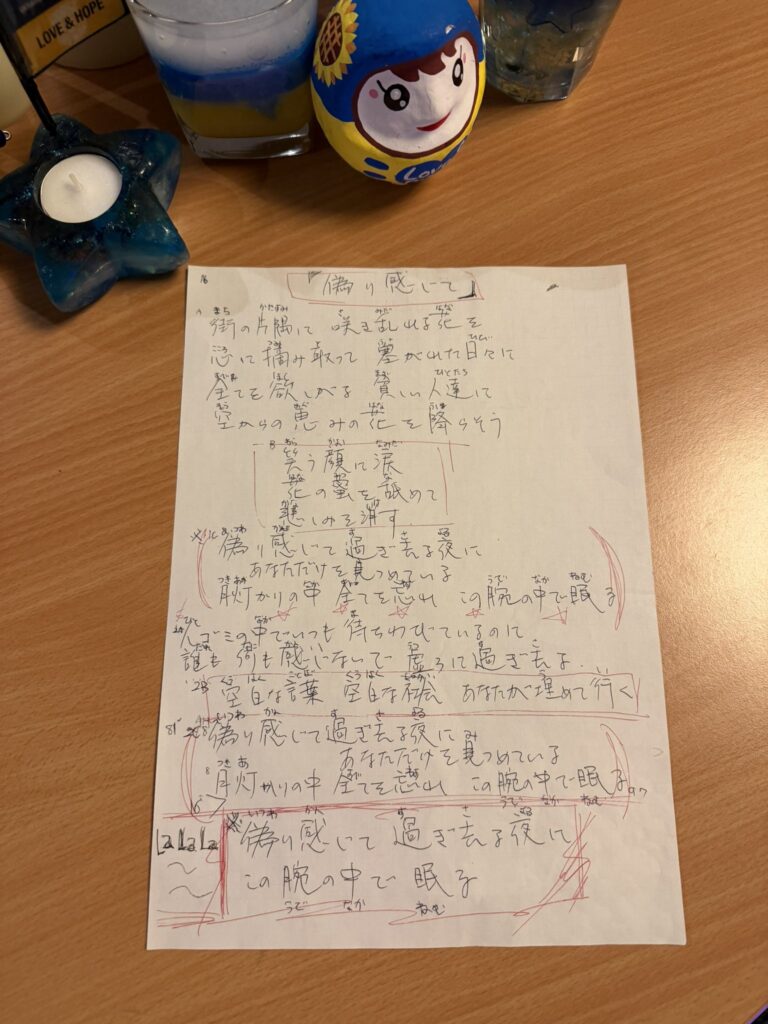 LOVE & HOPE
Love
「偽り感じて」
街の片隅に 咲き乱れる花を
恋に摘み取って 塗がれた日々に
全てを欲しがる 貧しい人達に
空からの恵みの花を降らそう
笑う顔に涙
花の蜜を舐めて
悲しみを消す
偽り感じて過ぎ去る夜に
あなただけを見つめている
月灯かりの中 全てを忘れ この腕の中で眠る
人ゴミの中でいつも待ちわびているのに
誰も何も感じないで 虚ろに過ぎ去る
空白な言葉 空白な社会 あなたが埋めて行く
偽り感じて過ぎ去る夜に
あなただけを見つめている
月灯かりの中 全てを忘れ この腕の中で眠る
La La La
偽り感じて 過ぎ去る夜に
この腕の中で 眠る